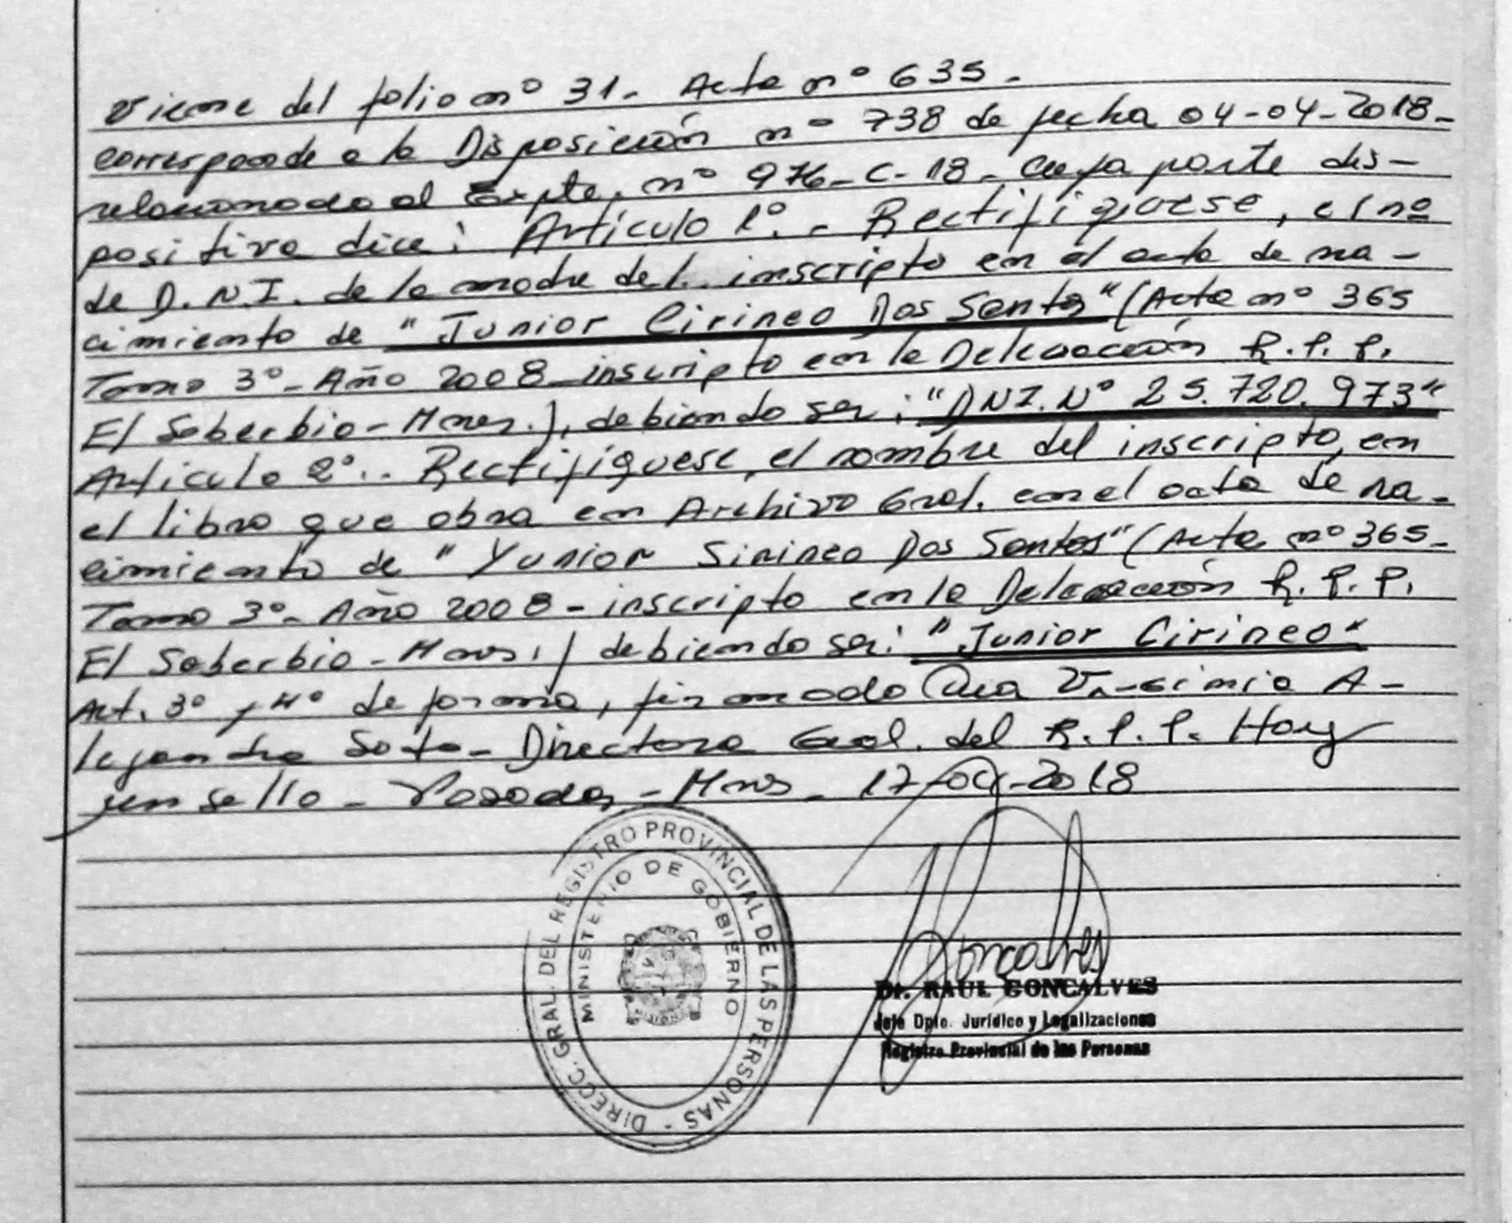 Viene del folio nº 31- Acta nº 635-
corresponde a la Disposición nº 738 de fecha 04-04-2018-
relacionado al Expte. nº 976-C-18- cuya parte dis-
positiva dice: Artículo 1º.- Rectifíquese, el nº
de D.N.I. de la madre del inscripto en el acta de na-
cimiento de "Junior Cirineo Dos Santos" (Acta nº 365
Tomo 3º- Año 2008- inscripto en la Delegación R.P.P.
El Soberbio-Mnes.), debiendo ser: "DNI. Nº 25.720.973"
Artículo 2º.. Rectifíquese, el nombre del inscripto, en
el libro que obra en Archivo Gral. en el acta de na-
cimiento de "Yunior Sirineo Dos Santos" (Acta nº 365-
Tomo 3º- Año 2008- inscripto en la Delegación R.P.P.
El Soberbio-Mnes.) debiendo ser: "Junior Cirineo"
Art. 3º y 4º de forma, firmado A-
lejandra Soto- Directora Gral. del R.P.P. Hay
un sello- Posadas-Mnes- 2018
DIRECC. GRAL. DEL REGISTRO PROVINCIAL DE LAS PERSONAS -
MINISTERIO DE GOBIERNO
Goncalves
Dr. RAUL GONCALVES
Jefe Dpto. Jurídico y Legalizaciones
Registro Provincial de las Personas